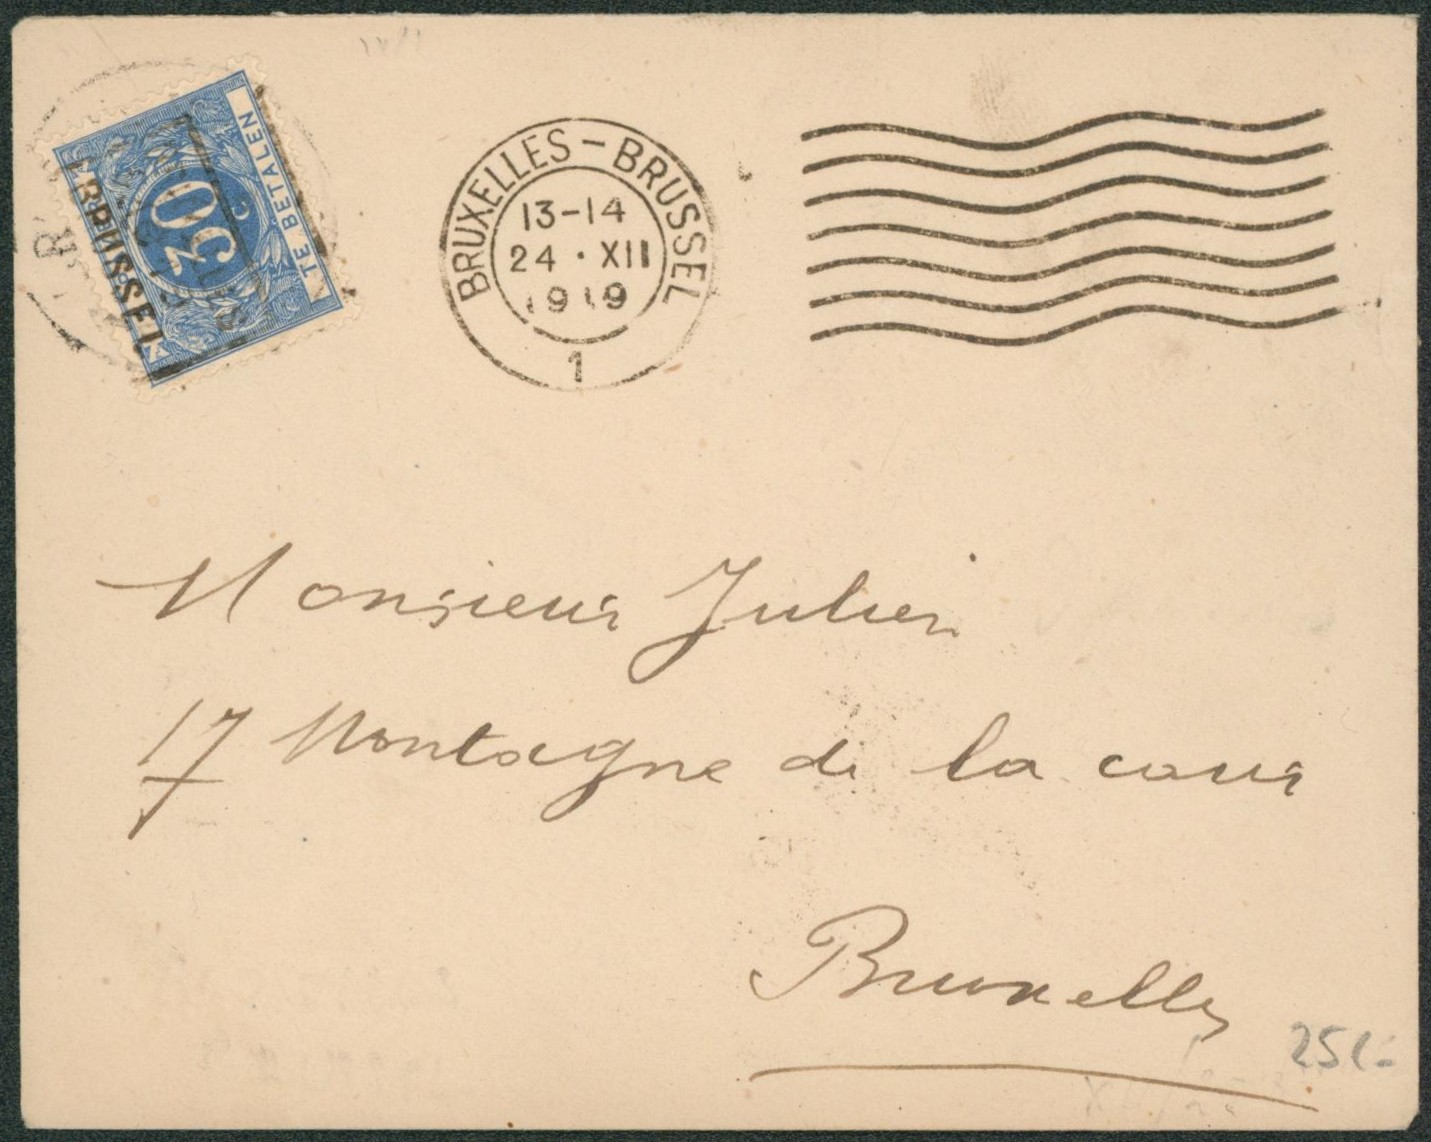 30
c
TE BETALEN
BRUSSEL
BRUXELLES-BRUSSEL
13-14
24 · XII
1919
1
Monsieur Julien
17 Montagne de la cour
Bruxelles
25